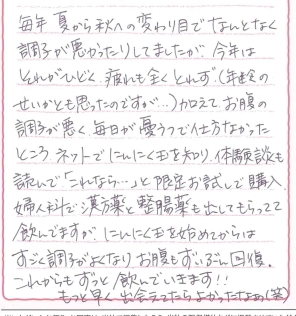 毎年 夏から秋への変わり目でなんとなく
調子が悪かったりしてましたが、今年は
それがひどく 疲れも全くとれず(年齢の
せいかとも思ったのですが…)加えてお腹の
調子が悪く毎日が憂うつで仕方なかった
ところ ネットでにんにく玉を知り、体験談も
読んで「これなら…」と限定お試しで購入
婦人科で漢方薬と整腸薬も出してもらってて
飲んでますが、にんにく玉を始めてからは
すごく調子がよくなり お腹もずいぶん回復。
これからもずっと飲んでいきます!!
もっと早く出会えてたらよかったなぁ(笑)